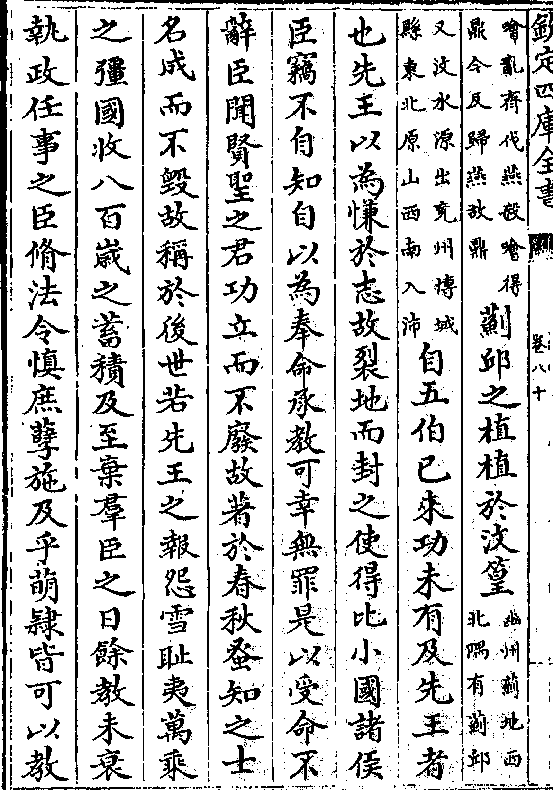 欽定四庫全書
卷八十
噲亂齊伐燕殺噲得
鼎今反歸燕故鼎
薊邱之植植於汶篁
幽州薊地西
北隅有薊邱
又汶水源出兖州博城
縣東北原山西南入沛
自五伯已來功未有及先王者
也先王以為慊於志故裂地而封之使得比小國諸侯
臣竊不自知自以為奉命承教可幸無罪是以受命不
辭臣聞賢聖之君功立而不廢故著於春秋蚤知之士
名成而不毀故稱於後世若先王之報怨雪恥夷萬乘
之彊國收八百歲之蓄積及至棄羣臣之日餘教未衰
執政任事之臣脩法令慎庶孽施及乎萌隸皆可以教